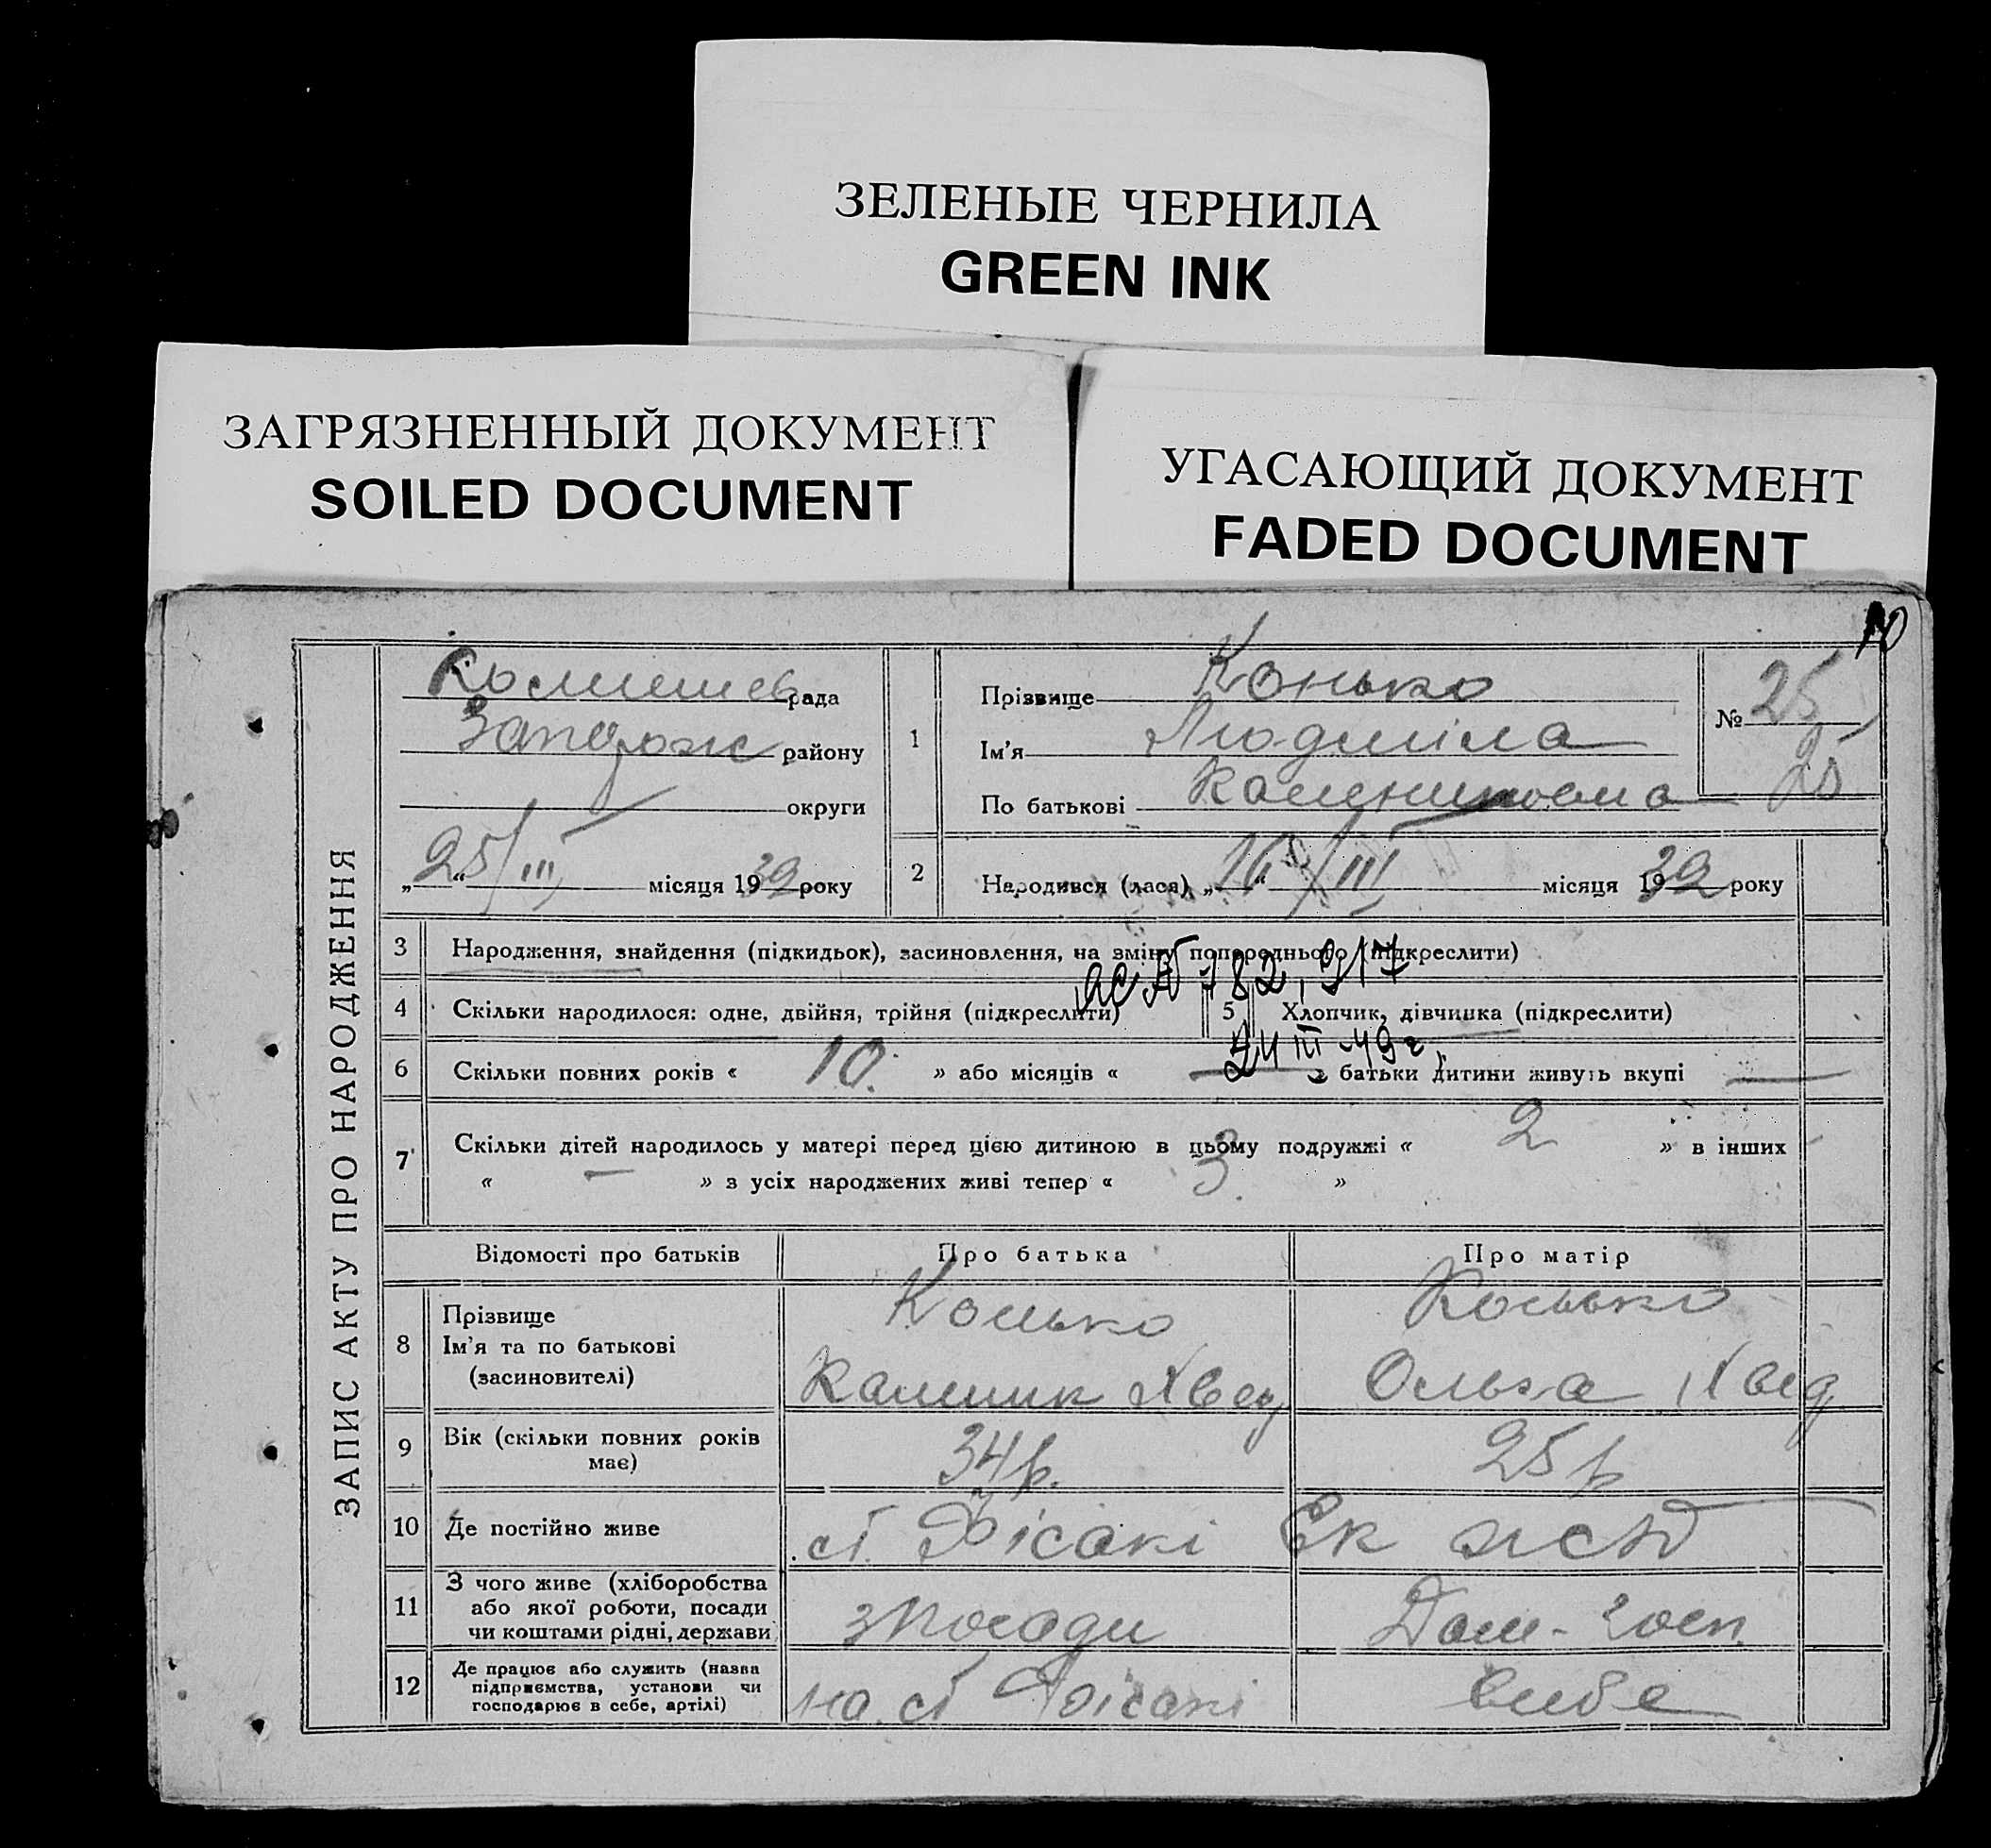 ЗЕЛЕНЫЕ ЧЕРНИЛА
GREEN INK
ЗАГРЯЗНЕННЫЙ ДОКУМЕНТ
SOILED DOCUMENT
УГАСАЮЩИЙ ДОКУМЕНТ
FADED DOCUMENT
10
ЗАПИС АКТУ ПРО НАРОДЖЕННЯ
Комишев рада
Запорож району
округи
„25/III“ місяця 1939 року
1
Прізвище Конько
Ім'я Людміла
По батькові
№ 25
25
2
Народився (лася) „16“/III місяця 1939 року
3 Народження, знайдення (підкидьок), засиновлення, на зміну попереднього (підкреслити)
4 Скільки народилося: одне, двійня, трійня (підкреслити)
5 Хлопчик, дівчинка (підкреслити)
24 III-49 г.
6 Скільки повних років « 10. » або місяців « — » батьки дитини живуть вкупі —
7 Скільки дітей народилось у матері перед цією дитиною в цьому подружжі « 2 » в інших
« — » з усіх народжених живі тепер « 3. »
Відомості про батьків
Про батька
Про матір
8 Прізвище
Ім'я та по батькові
(засиновителі)
Конько
Калиник Хвед
Конько
Ольга Хвед
9 Вік (скільки повних років
має)
34 р.
25 р
10 Де постійно живе
ст.
11 З чого живе (хліборобства
або якої роботи, посади
чи коштами рідні, держави
з посади
Дом-госп.
12 Де працює або служить (назва
підприємства, установи чи
господарює в себе, артілі)
на ст